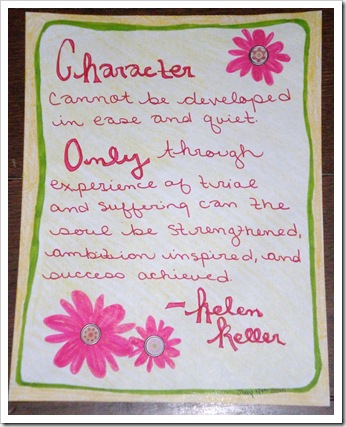 Character
cannot be developed
in ease and quiet.
Only through
experience of trial
and suffering can the
soul be strengthened,
ambition inspired, and
success achieved.
- Helen
Keller